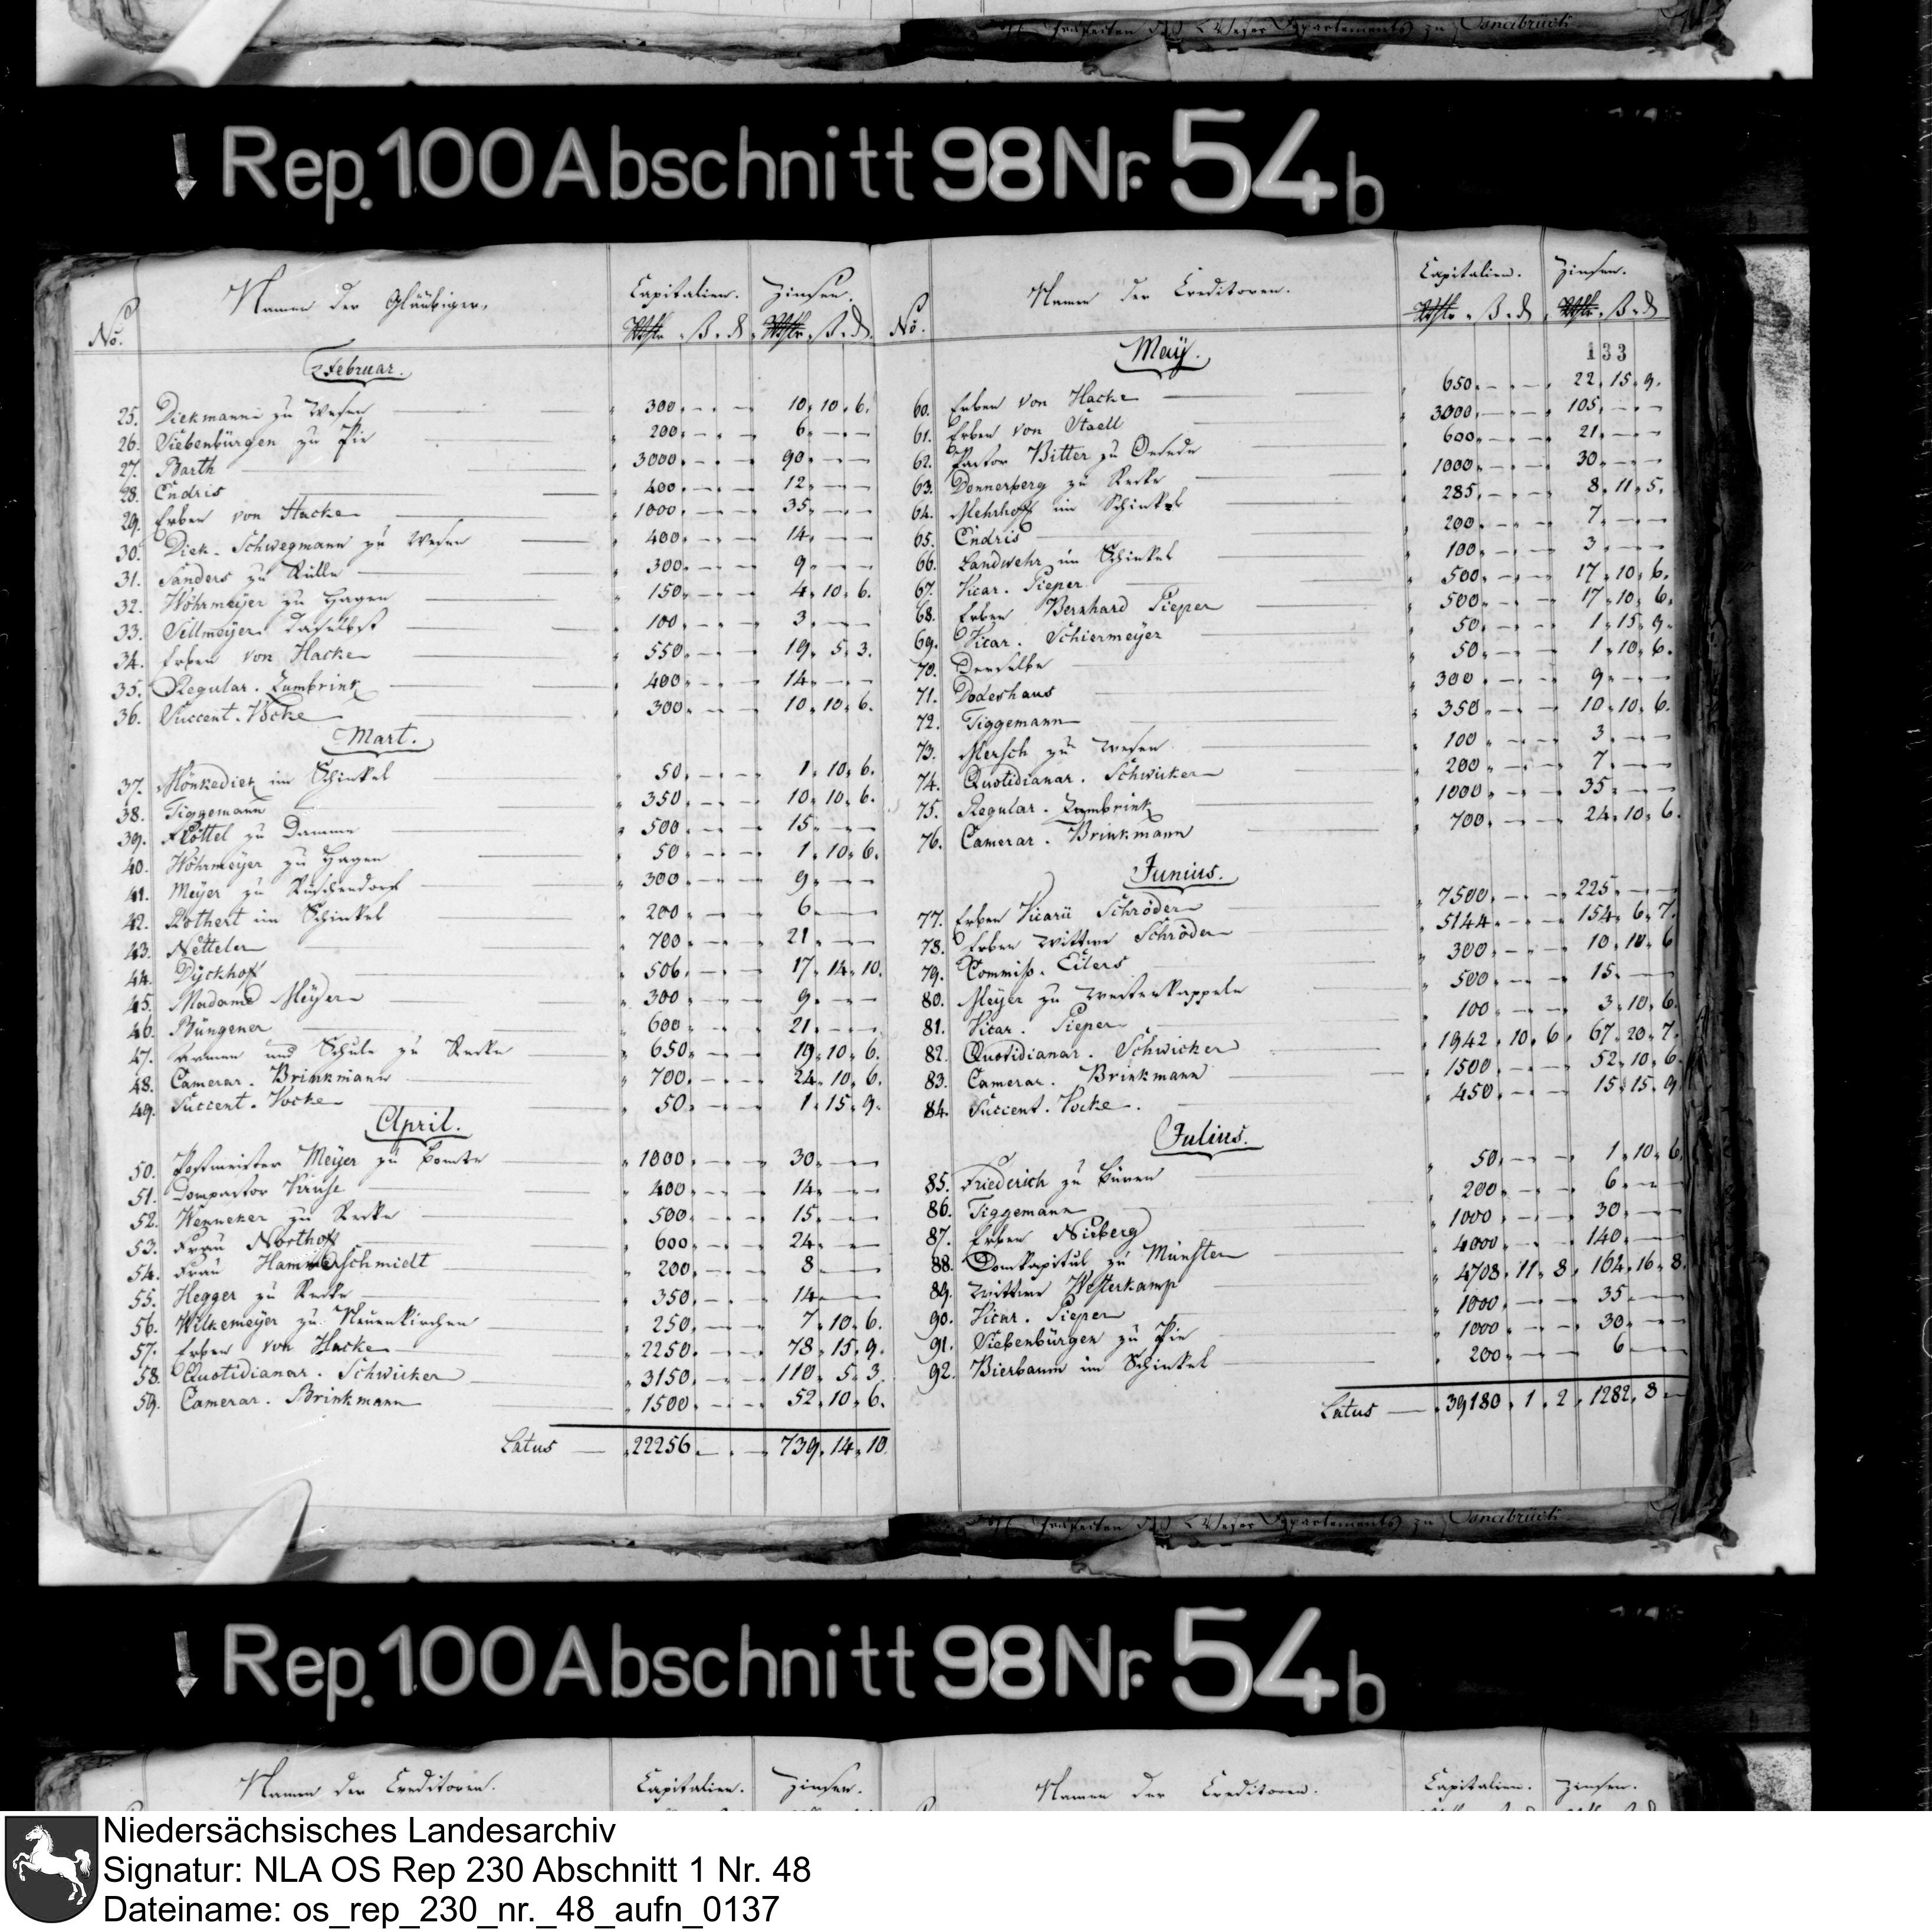 Rep. 100 Abschnitt 98 Nr. 54 b
No. Namen der Gläubiger. Capitalien. Zinsen.
Rthlr. ß. d. Rthlr. ß. d.
Februar.
25. Diekmann zu Wesen 300. - - 10. 10. 6.
26. Siebenbürgen zu Pie 200. - - 6. - -
27. Barth 3000. - - 90. - -
28. Endris 400. - - 12. - -
29. Erben von Hacke 1000. - - 35. - -
30. Diek-Schwegmann zu Wesen 400. - - 14. - -
31. Sanders zu Rulle 300. - - 9. - -
32. Wöhrmeyer zu Hagen 150. - - 4. 10. 6.
33. Sillmeyer daselbst 100. - - 3. - -
34. Erben von Hacke 550. - - 19. 5. 3.
35. Regular. Zumbrink 400. - - 14. - -
36. Succent. Vocke 300. - - 10. 10. 6.
Mart.
37. Hönkediek im Schinkel 50. - - 1. 10. 6.
38. Tiggemann 350. - - 10. 10. 6.
39. Kottel zu Damme 500. - - 15. - -
40. Wöhrmeyer zu Hagen 50. - - 1. 10. 6.
41. Meyer zu 300. - - 9. - -
42. Rothert im Schinkel 200. - - 6. - -
43. Netteler 700. - - 21. - -
44. Dyckhof 506. - - 17. 14. 10.
45. Madame Meyer 300. - - 9. - -
46. Büngener 600. - - 21. - -
47. Armen und Schule zu Recke 650. - - 19. 10. 6.
48. Camerar. Brinkmann 700. - - 24. 10. 6.
49. Succent. Vocke 50. - - 1. 15. 9.
April.
50. Postmeister Meyer zu Bomte 1000. - - 30. - -
51. Dompastor Kruse 400. - - 14. - -
52. Wenneker zu Recke 500. - - 15. - -
53. Frau Northof 600. - - 24. - -
54. Frau Hammerschmidt 200. - - 8. - -
55. Hegger zu Recke 350. - - 14. - -
56. Wilkemeyer zu Neuenkirchen 250. - - 7. 10. 6.
57. Erben von Hacke 2250. - - 78. 15. 9.
58. Quotidianar. Schwicker 3150. - - 110. 5. 3.
59. Camerar. Brinkmann 1500. - - 52. 10. 6.
Latus 22256. - - 739. 14. 10.
No. Namen der Creditoren. Capitalien. Zinsen.
Rthlr. ß. d. Rthlr. ß. d.
133
May.
60. Erben von Hacke 650. - - 22. 15. 9.
61. Erben von Staell 3000. - - 105. - -
62. Pastor Bitter zu Oesede 600. - - 21. - -
63. Donnerberg zu Recke 1000. - - 30. - -
64. Mehrhoff im Schinkel 285. - - 8. 11. 5.
65. Endris 200. - - 7. - -
66. Landwehr im Schinkel 100. - - 3. - -
67. Vicar. Pieper 500. - - 17. 10. 6.
68. Erben Bernhard Pieper 500. - - 17. 10. 6.
69. Vicar. Schiermeyer 50. - - 1. 15. 9.
70. Derselbe 50. - - 1. 10. 6.
71. Dodeshaus 300. - - 9. - -
72. Tiggemann 350. - - 10. 10. 6.
73. Mersch zu Wesen 100. - - 3. - -
74. Quotidianar. Schwicker 200. - - 7. - -
75. Regular. Zumbrink 1000. - - 35. - -
76. Camerar. Brinkmann 700. - - 24. 10. 6.
Junius.
77. Erben Vicarii Schröder 7500. - - 225. - -
78. Erben Wittwe Schröder 5144. - - 154. 6. 7.
79. Commiss. Eilers 300. - - 10. 10. 6
80. Meyer zu Westerkappeln 500. - - 15. - -
81. Vicar. Pieper 100. - - 3. 10. 6.
82. Quotidianar. Schwicker 1942. 10. 6. 67. 20. 7.
83. Camerar. Brinkmann 1500. - - 52. 10. 6.
84. Succent. Vocke. 450. - - 15. 15. 9
Julius.
85. Friederich zu Büren 50. - - 1. 10. 6.
86. Tiggemann 200. - - 6. - -
87. Erben Nieberg 1000. - - 30. - -
88. Domkapitul zu Münster 4000. - - 140. - -
89. Wittwe Westerkamp 4708. 11. 8. 164. 16. 8.
90. Vicar. Pieper 1000. - - 35. - -
91. Siebenbürgen zu Pie 1000. - - 30. - -
92. Bierbaum im Schinkel 200. - - 6. - -
Latus 39180. 1. 2. 1282. 3. -
Weser Departements zu Osnabrück
Rep. 100 Abschnitt 98 Nr. 54 b
Namen der Creditoren. Capitalien. Zinsen. Namen der Creditoren. Capitalien. Zinsen.
Niedersächsisches Landesarchiv
Signatur: NLA OS Rep 230 Abschnitt 1 Nr. 48
Dateiname: os_rep_230_nr._48_aufn_0137